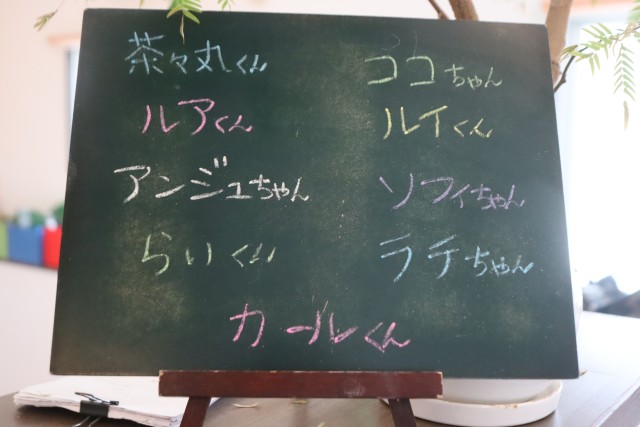 茶々丸くん
ココちゃん
ルアくん
ルイくん
アンジュちゃん
ソフィちゃん
らいくん
ラテちゃん
カールくん